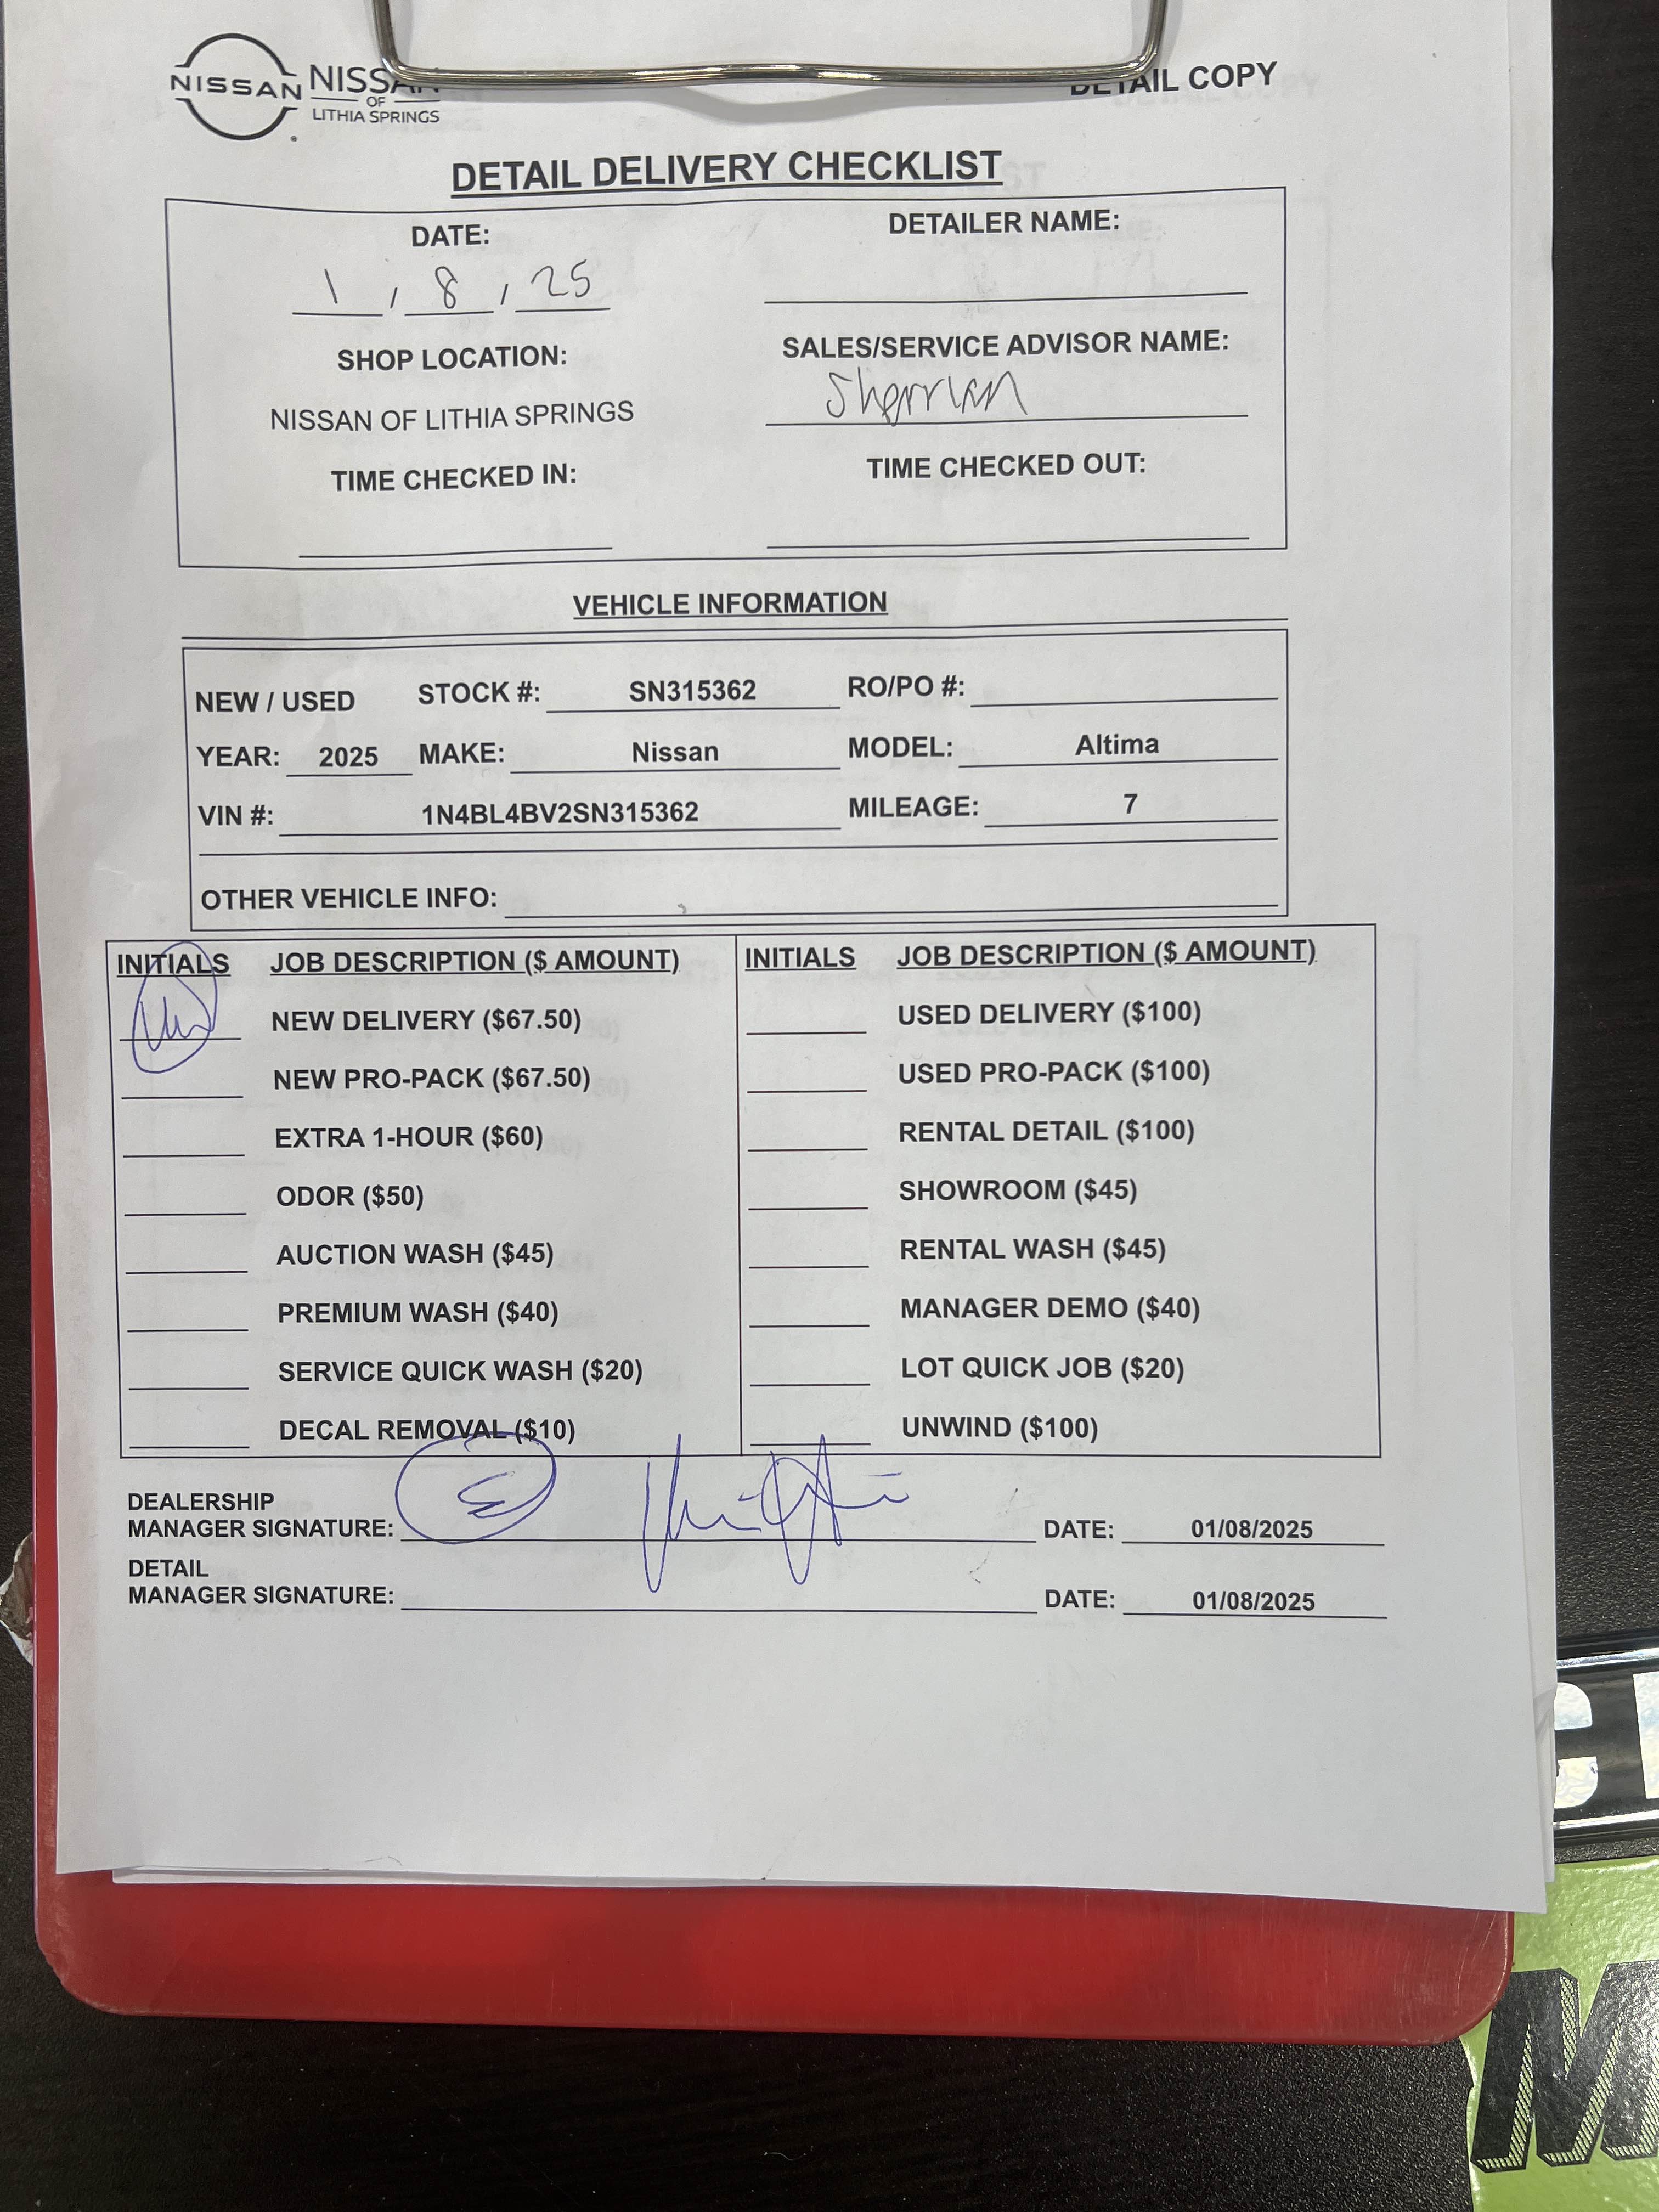 NISSAN NISSAN
OF
LITHIA SPRINGS
DETAIL COPY
DETAIL DELIVERY CHECKLIST
DATE: DETAILER NAME:
1 / 8 / 25
SHOP LOCATION: SALES/SERVICE ADVISOR NAME:
NISSAN OF LITHIA SPRINGS
TIME CHECKED IN: TIME CHECKED OUT:
VEHICLE INFORMATION
NEW / USED STOCK #: SN315362 RO/PO #:
YEAR: 2025 MAKE: Nissan MODEL: Altima
VIN #: 1N4BL4BV2SN315362 MILEAGE: 7
OTHER VEHICLE INFO:
INITIALS JOB DESCRIPTION ($ AMOUNT) INITIALS JOB DESCRIPTION ($ AMOUNT)
NEW DELIVERY ($67.50) USED DELIVERY ($100)
NEW PRO-PACK ($67.50) USED PRO-PACK ($100)
EXTRA 1-HOUR ($60) RENTAL DETAIL ($100)
ODOR ($50) SHOWROOM ($45)
AUCTION WASH ($45) RENTAL WASH ($45)
PREMIUM WASH ($40) MANAGER DEMO ($40)
SERVICE QUICK WASH ($20) LOT QUICK JOB ($20)
DECAL REMOVAL ($10) UNWIND ($100)
DEALERSHIP
MANAGER SIGNATURE: DATE: 01/08/2025
DETAIL
MANAGER SIGNATURE: DATE: 01/08/2025